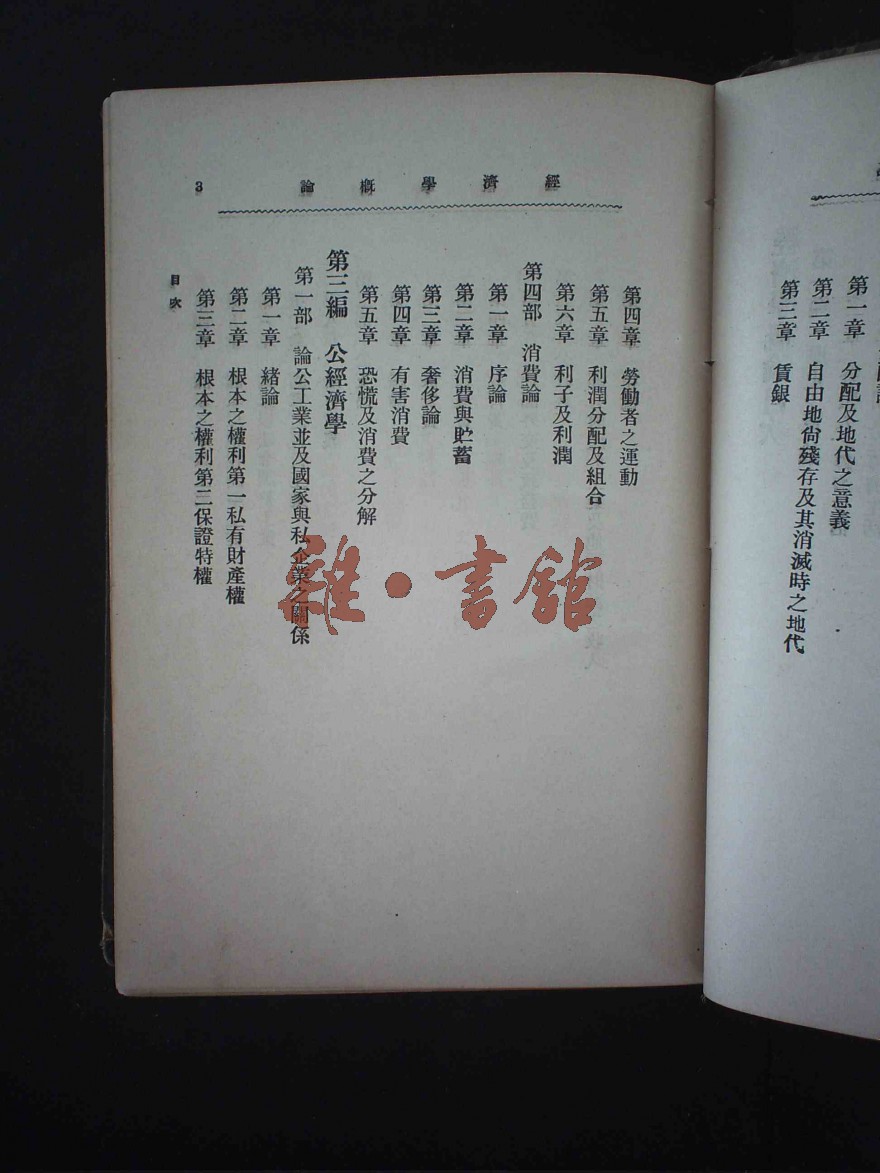 第一章 分配及地代之意義
第二章 自由地尙殘存及其消滅時之地代
第三章 賃銀
經濟學槪論
3
第四章 勞働者之運動
第五章 利潤分配及組合
第六章 利子及利潤
第四部 消費論
第一章 序論
第二章 消費與貯蓄
第三章 奢侈論
第四章 有害消費
第五章 恐慌及消費之分解
第三編 公經濟學
第一部 論公工業並及國家與私企業之關係
第一章 緖論
第二章 根本之權利第一私有財產權
第三章 根本之權利第二保證特權
目次
雜·書館